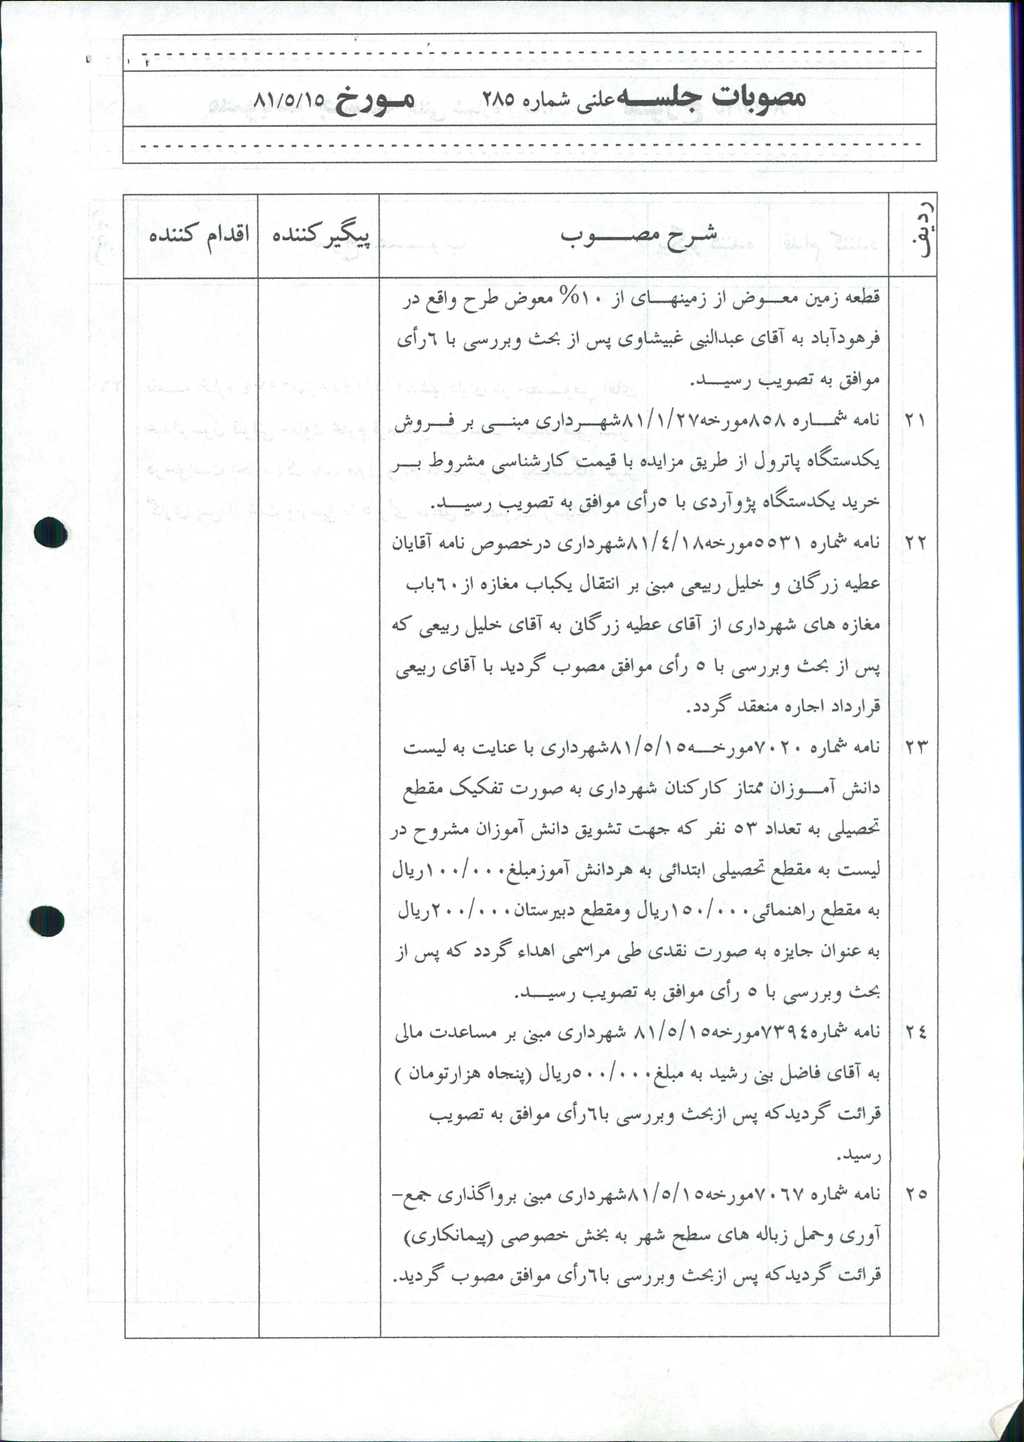 مصوبات جلسه علنی شماره ۲۸۵ مورخ ۸۱/۵/۱۵
ردیف شرح مصوب پیگیرکننده اقدام کننده
قطعه زمین معوض از زمینهای از ۱۰% معوض طرح واقع در
فرهودآباد به آقای عبدالنبی غبیشاوی پس از بحث وبررسی با ٦رأی
موافق به تصویب رسید.
۲۱ نامه شماره ۸۵۸مورخه۸۱/۱/۲۷شهرداری مبنی بر فروش
یکدستگاه پاترول از طریق مزایده با قیمت کارشناسی مشروط بر
خرید یکدستگاه پژوآردی با ۵رأی موافق به تصویب رسید.
۲۲ نامه شماره ۵۵۳۱مورخه۸۱/٤/۱۸شهرداری درخصوص نامه آقایان
عطیه زرگانی و خلیل ربیعی مبنی بر انتقال یکباب مغازه از٦۰باب
مغازه های شهرداری از آقای عطیه زرگانی به آقای خلیل ربیعی که
پس از بحث وبررسی با ۵ رأی موافق مصوب گردید با آقای ربیعی
قرارداد اجاره منعقد گردد.
۲۳ نامه شماره ۷۰۲۰مورخه۸۱/۵/۱۵شهرداری با عنایت به لیست
دانش آموزان ممتاز کارکنان شهرداری به صورت تفکیک مقطع
تحصیلی به تعداد ۵۳ نفر که جهت تشویق دانش آموزان مشروح در
لیست به مقطع تحصیلی ابتدائی به هردانش آموزمبلغ۱۰۰/۰۰۰ریال
به مقطع راهنمائی۱۵۰/۰۰۰ریال ومقطع دبیرستان۲۰۰/۰۰۰ریال
به عنوان جایزه به صورت نقدی طی مراسمی اهداء گردد که پس از
بحث وبررسی با ۵ رأی موافق به تصویب رسید.
۲٤ نامه شماره۷۳۹٤مورخه۸۱/۵/۱۵ شهرداری مبنی بر مساعدت مالی
به آقای فاضل بنی رشید به مبلغ۵۰۰/۰۰۰ریال (پنجاه هزارتومان )
قرائت گردیدکه پس ازبحث وبررسی با٦رأی موافق به تصویب
رسید.
۲۵ نامه شماره ۷۰٦۷مورخه۸۱/۵/۱۵شهرداری مبنی برواگذاری جمع-
آوری وحمل زباله های سطح شهر به بخش خصوصی (پیمانکاری)
قرائت گردیدکه پس ازبحث وبررسی با٦رأی موافق مصوب گردید.